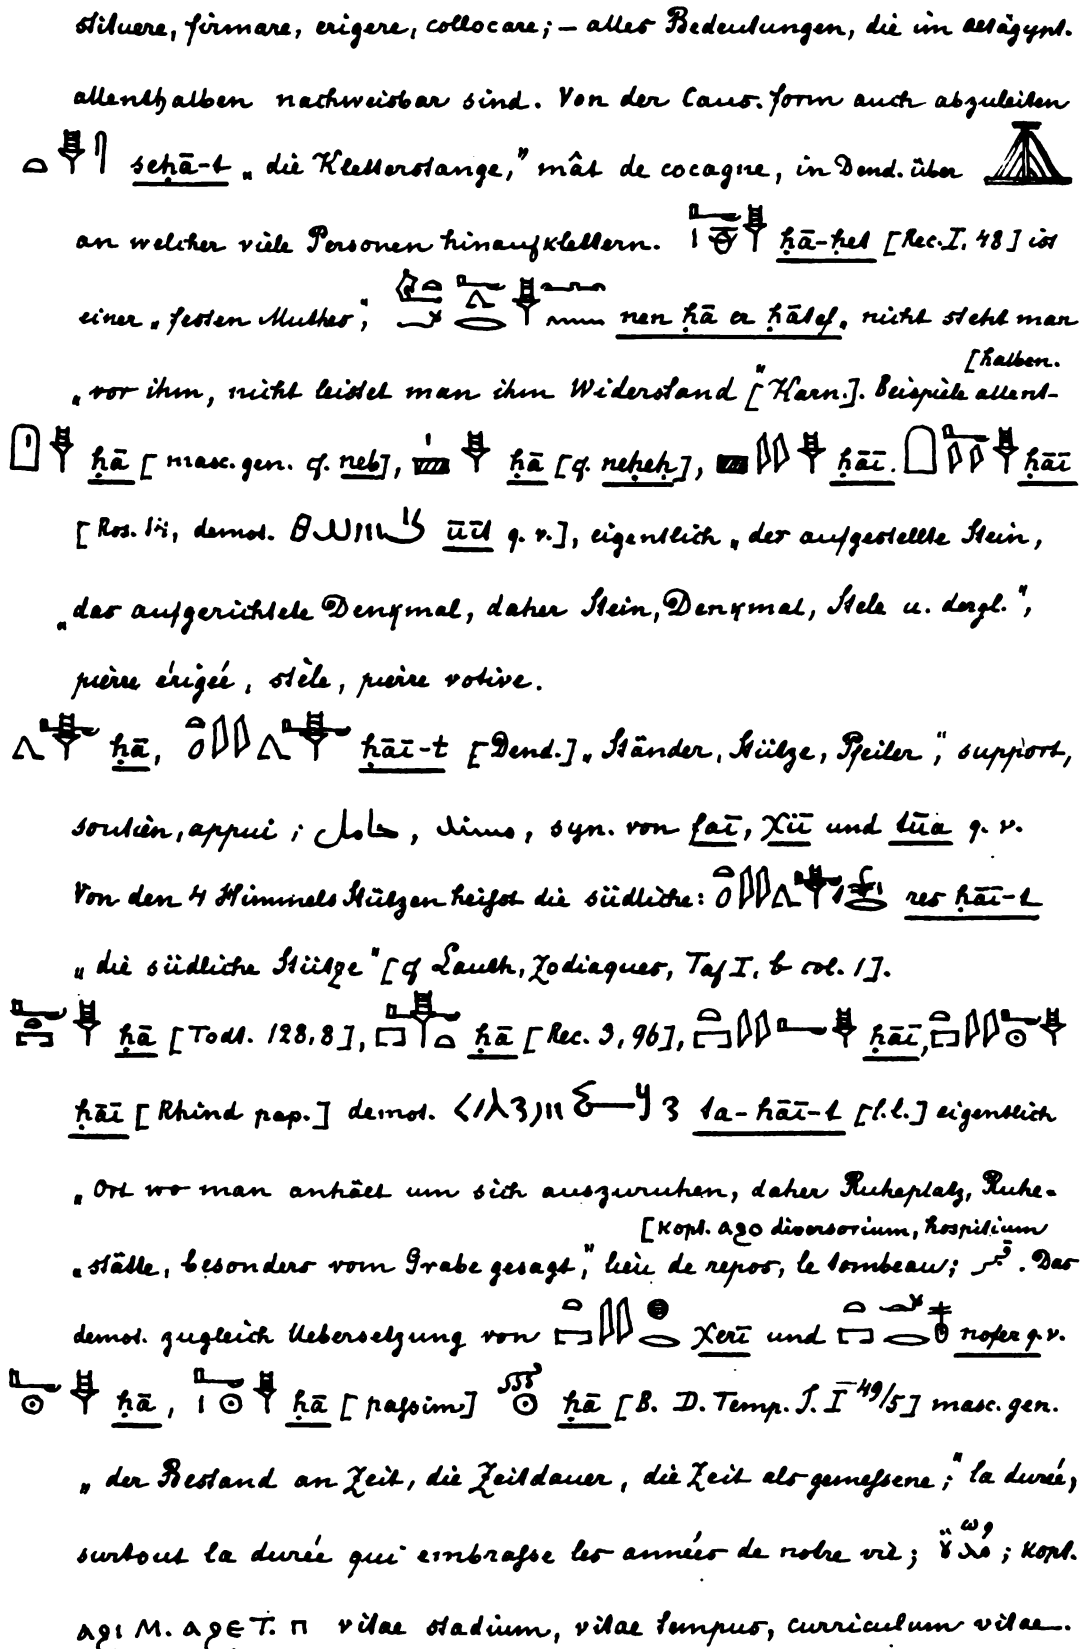 stituere, firmare, erigere, collocare; – alles Bedeutungen, die im altägypt.
allenthalben nachweisbar sind. Von der Caus. form auch abzuleiten
seḥā-t „die Kletterstange,” mât de cocagne, in Dend. über
an welcher viele Personen hinaufklettern. ḥā-ḥet [Rec. I, 48] ist
einer „festen Muthes”; nen ḥā er ḥātef „nicht steht man
[halben.
„vor ihm, nicht leistet man ihm Widerstand” [Karn.]. Beispiele allent-
ḥā [masc. gen. cf. neb], ḥā [cf. neḥeḥ], ḥāī. ḥāī
[Ros. demot. q. v.], eigentlich „der aufgestellte Stein,
„das aufgerichtete Denkmal, daher Stein, Denkmal, Stele u. dergl.”,
pierre érigée, stèle, pierre votive.
ḥā, ḥāī-t [Dend.] „Ständer, Stütze, Pfeiler”, support,
soutien, appui; حامل, مسند, syn. von faī, χīī und tūa q. v.
Von den 4 HimmelsStützen heifst die südliche: res ḥāī-t
„die südliche Stütze” [cf Lauth, Zodiaques, Taf I, b col. 1].
ḥā [Todt. 128,8], ḥā [Rec. 3,96], ḥāī,
ḥāī [Rhind pap.] demot. ta-ḥāī-t [l.l.] eigentlich
„Ort wo man anhält um sich auszuruhen, daher Ruheplatz, Ruhe-
[Kopt. ⲁϩⲟ diversorium, hospitium
„stätte, besonders vom Grabe gesagt”, lieu de repos, le tombeau; . Das
demot. zugleich Uebersetzung von χerī und nofer q.v.
ḥā, ḥā [passim] ḥā [B. D. Temp. J. I 49/5] masc. gen.
„der Bestand an Zeit, die Zeitdauer, die Zeit als gemessene”; la durée,
surtout la durée qui embrasse les années de notre vie; ; kopt.
ⲁϩⲓ M. ⲁϩⲉ T. ⲡ vitae stadium, vitae tempus, curriculum vitae.